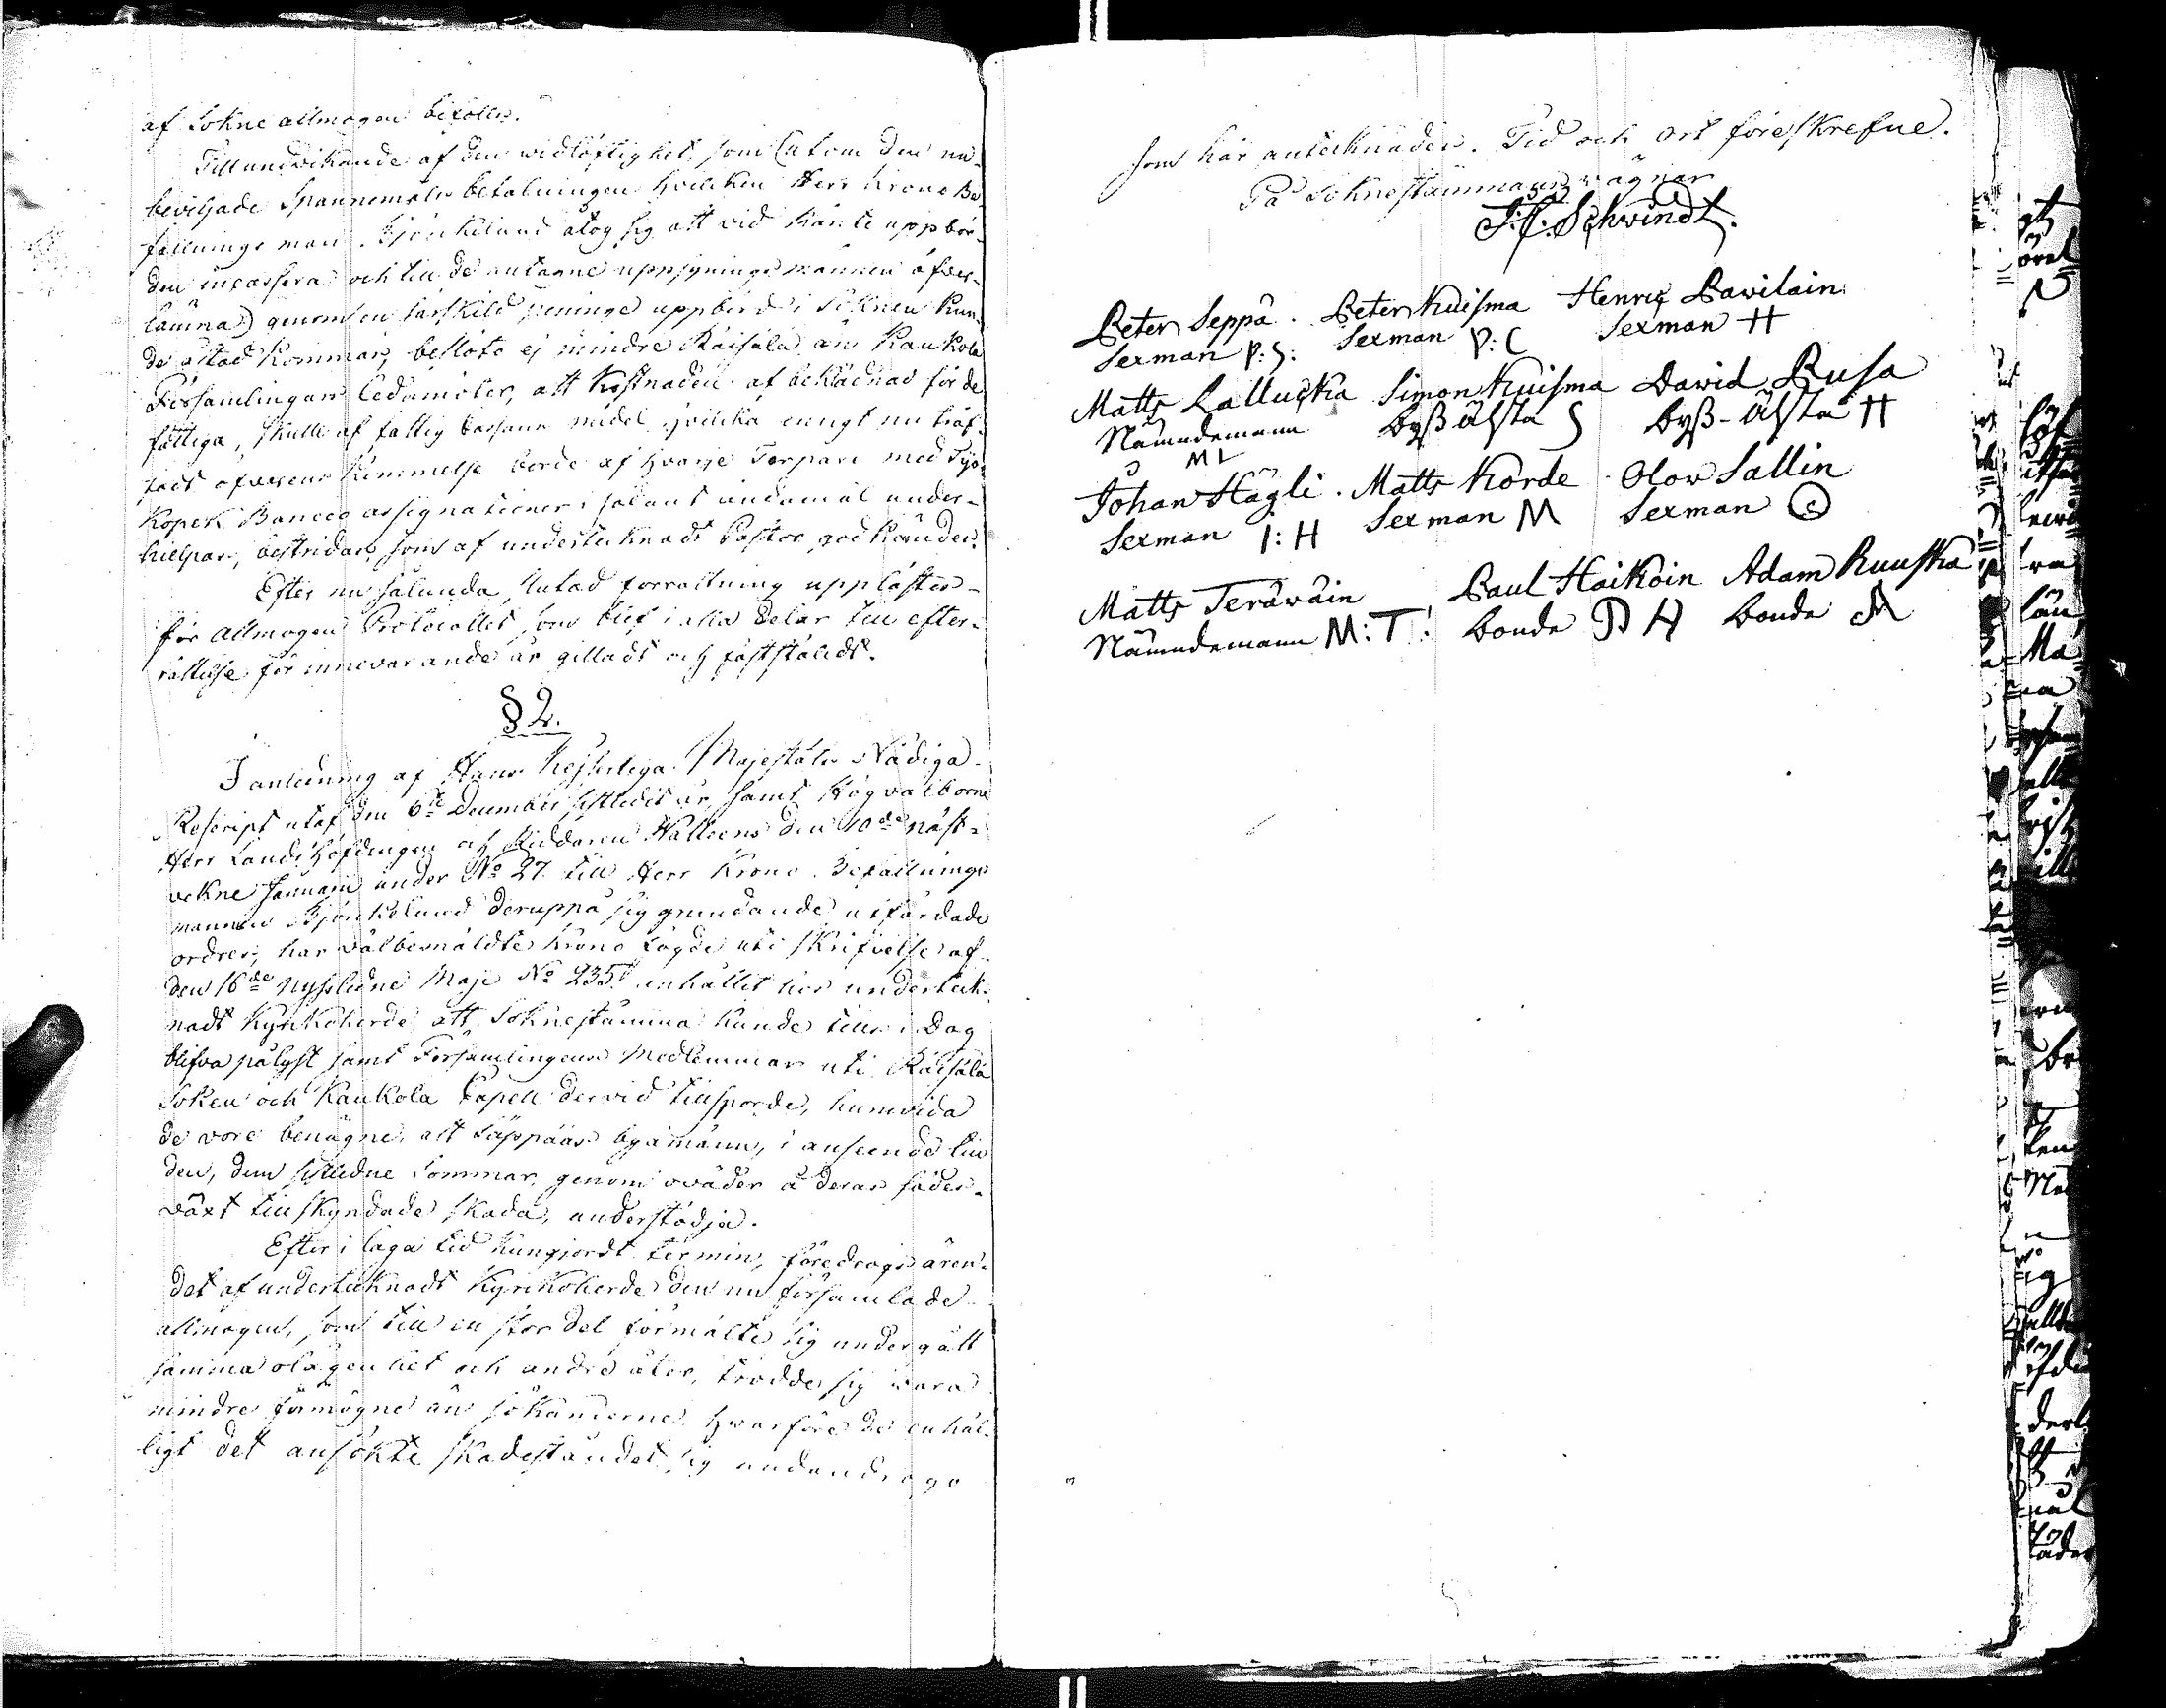 af Sokne allmogen bifölls.
Till undvikande af den widlöftighet, som (utom den nu
beviljade Spannemåls betalningen hvilken Herr Krono Be¬
fallningsman Björkelund åtog sig att vid Ränte uppbör¬
den incassera och till de antagne uppsyningsmännen öfver¬
lämna) genom en särskild penninge uppbörd i Soknen kun¬
de åstad kommas, beslöto ej mindre Räisälä än Kaukola
Församlingars ledamöter, att kostnaden af beklädnad för de
fattiga, skulle af fattig cassans medel, hvilka enligt nu träf¬
fadt öfverens kommelse borde af hvarje Torpare med Tjo¬
kopek Banco assignationer i sådant ändamål under¬
hielpas, bestridas, som af undertecknadt Pastor godkändes.
Efter nu sålunda slutad förrättning upplästes
för allmogen Protocollet, som blef i alla delar till efter¬
rättelse för innevarande år gilladt och fastställdt.
§ 2.
I anledning af Hans Kejserliga Majestäts Nådiga
Rescript utaf den 6te December sistledit år, samt Högvälborne
Herr Landshöfdingen och Riddaren Walleens den 10de näst¬
vekne Januarii under No 27 till Herr Krono Befallnings
mannen Björkelund deruppå sig grundande utfärdade
ordres, har välbemäldte Krono fogde uti skrifvelse af
den 16de nyssledne Maji No 235 anhållit hos underteck¬
nadt Kyrkoherde att Soknestämma kunde tills i Dag
blifva pålyst samt Församlingens Medlemmar uti Räisälä
Soken och Kaukola Capell dervid tillsporde, huruvida
de vore benägne, att Säppääs byamänn, i anseende till
den, dem sistledne Sommar, genom oväder å deras säder¬
växt tillskyndade skada, understödja.
Efter i laga tid kungjordt termin, föredrogs ären¬
det af undertecknadt Kyrkoherde den nu församlade
allmogen, som till en stor del förmälte sig undergått
samma olägenhet och andre åter, trodde sig vara
mindre förmögne än sökanderne hvarföre de enhäl¬
ligt det ansökte skadeståndet sig undandrogo
som här antecknades. Tid och ort föreskrefne.
På Soknestämmans vägnar
Schwindt.
Peter Seppä. Peter Kuisma Henric Pavilain
Sexman P: S: Sexman P: C Sexman H
Matts Lallucka Simon Kuisma David Rusa
Nämndemann byß älsta S byß-älsta H
ML
Johan Hägli. Matts Korde. Olow Sallin
Sexman I: H Sexman M Sexman
Matts Teräwäin Paul Haikoin Adam Ruuska
Nämndemann M: T: bonde P H bonde A